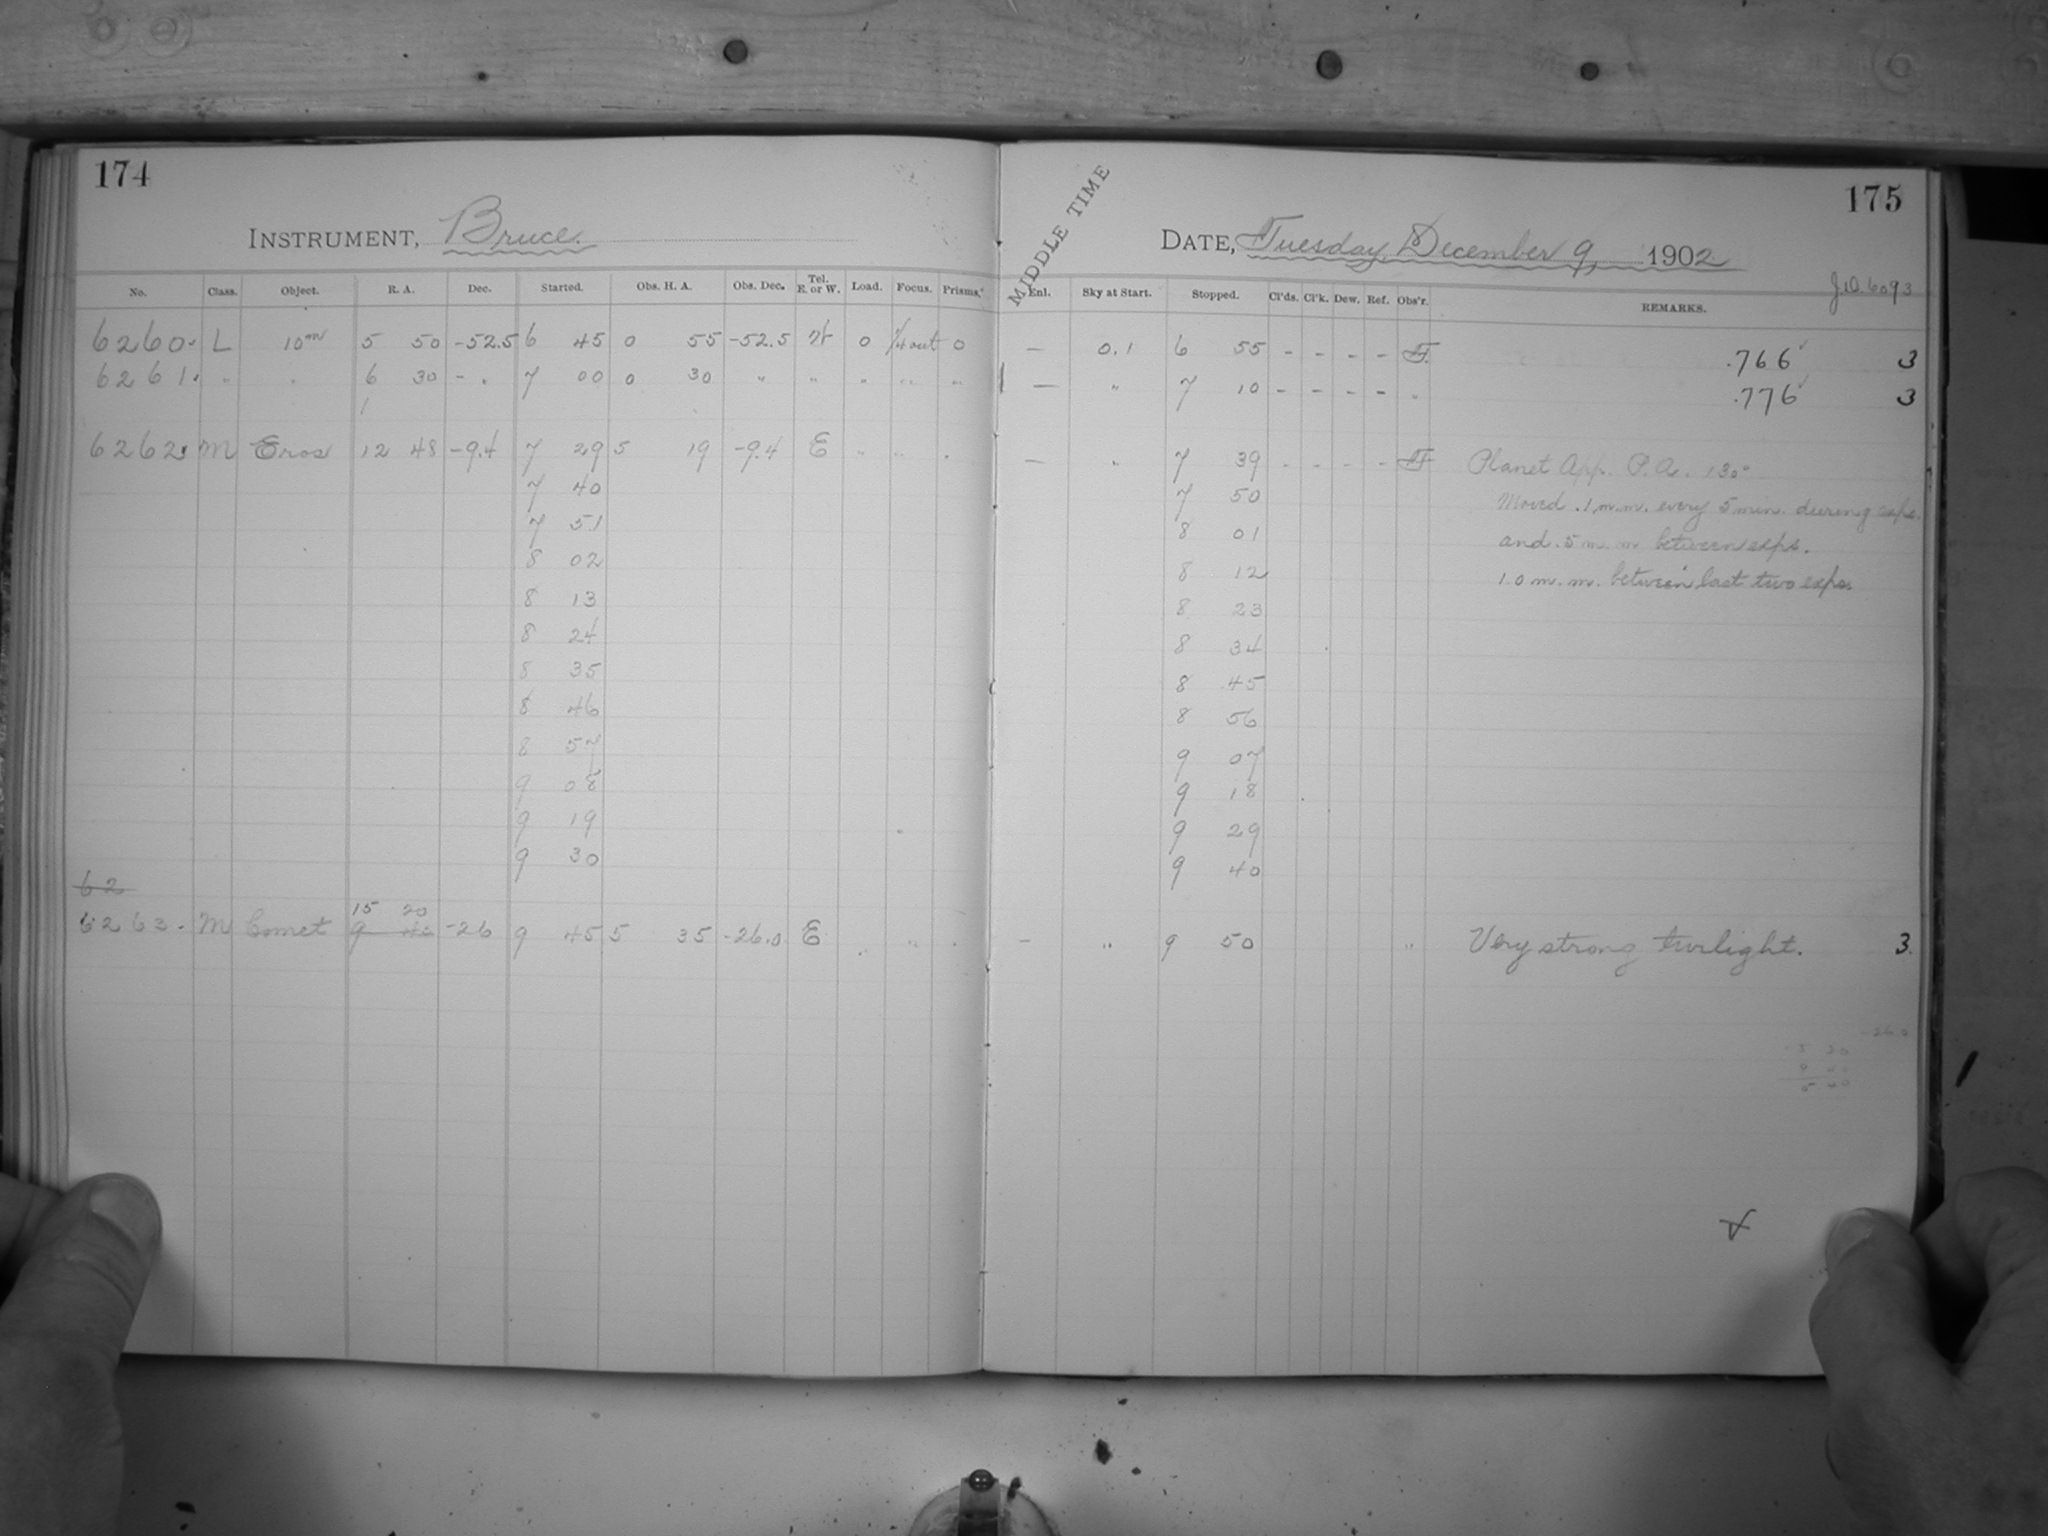 174
INSTRUMENT, Bruce.
No. Class. Object. R. A. Dec. Started. Obs. H. A. Obs. Dec. Tel. E. or W. Load. Focus. Prisms.
6260. L 10m 5 50 -52.5 6 45 0 55 -52.5 W 0 1/4 out 0
6261. " " 6 30 - " 7 00 0 30 " " " " "
6262. M Eros 12 48 -9.4 7 29 5 19 -9.4 E " " "
7 40
7 51
8 02
8 13
8 24
8 35
8 46
8 57
9 08
9 19
9 30
62
15 20
6263. M Comet 9 40 -26 9 45 5 35 -26.0 E " " "
175
MIDDLE TIME
DATE, Tuesday, December 9, 1902.
J.D. 6093
Enl. Sky at Start. Stopped. Cl'ds. Cl'k. Dew. Ref. Obs'r. REMARKS.
— 0.1 6 55 - - - - F. .766 3
— " 7 10 - - - - " .776 3
— " 7 39 - - - - F Planet App. P.A. 130°
7 50 Moved .1 m.m. every 5 min. during exps.
8 01 and .5 m.m between exps.
8 12 1.0 m.m. between last two exps.
8 23
8 34
8 45
8 56
9 07
9 18
9 29
9 40
- " 9 50 " Very strong twilight. 3.
-26.0